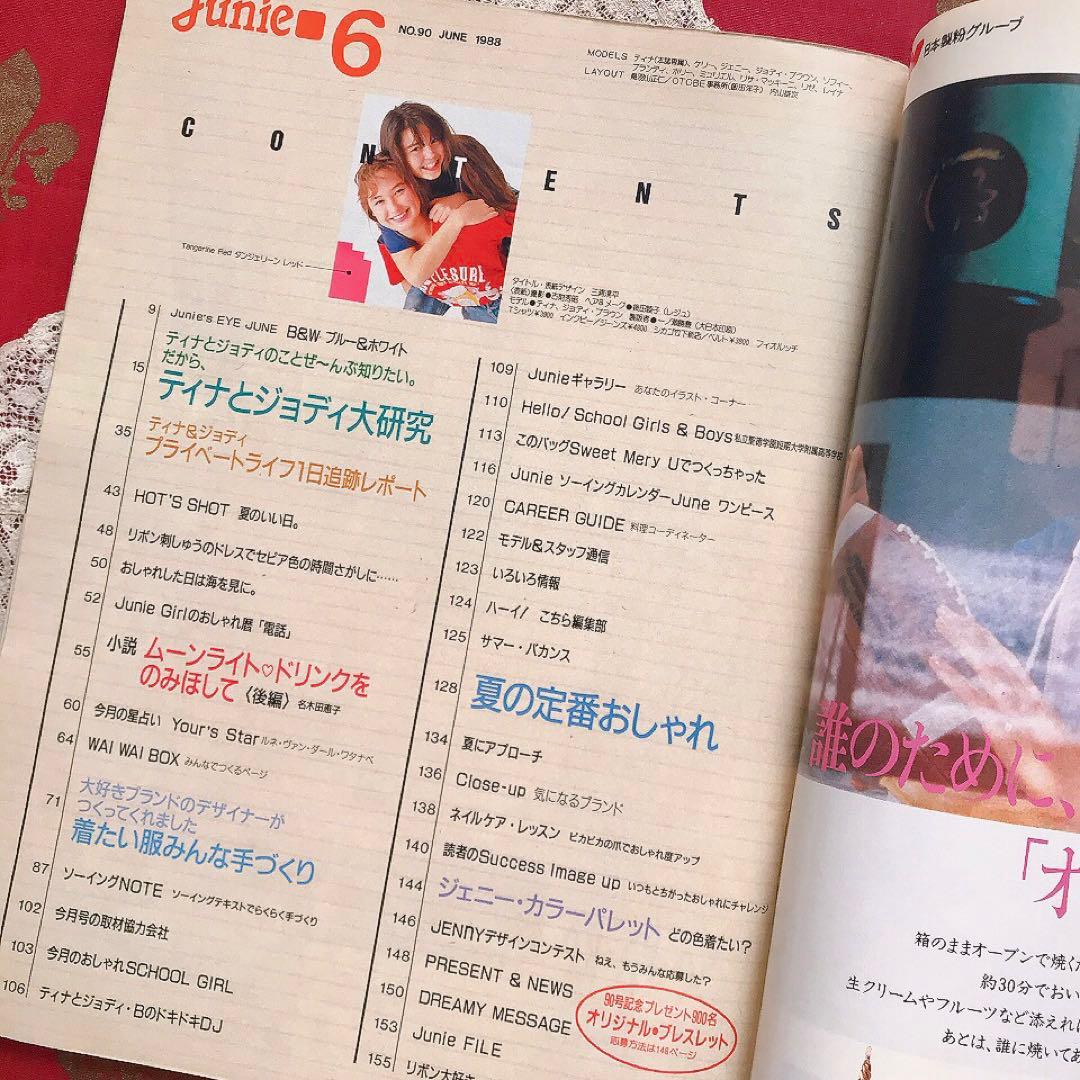 Junie 6
NO.90 JUNE 1988
MODELS ティナ(本誌専属)、ケリー、ジェニー、ジョディ・ブラウン、ソフィー、
ブランディ、ホリー、ミュリエル、リサ・マッキーニ、リザ、レイナ
LAYOUT
CONTENTS
Tangerine Red タンジェリーン レッド
タイトル・表紙デザイン
モデル●ティナ、ジョディ・ブラウン
Tシャツ¥3900
9 Junie's EYE JUNE B&W ブルー&ホワイト
ティナとジョディのことぜ〜んぶ知りたい。
だから、
15 ティナとジョディ大研究
ティナ&ジョディ
35 プライベートライフ1日追跡レポート
43 HOT'S SHOT 夏のいい日。
48 リボン刺しゅうのドレスでセピア色の時間さがしに……
50 おしゃれした日は海を見に。
52 Junie Girlのおしゃれ暦「電話」
55 小説 ムーンライト♡ドリンクを
のみほして〈後編〉 名木田恵子
60 今月の星占い Your's Star ルネ・ヴァン・ダール・ワタナベ
64 WAI WAI BOX みんなでつくるページ
大好きブランドのデザイナーが
つくってくれました
71 着たい服みんな手づくり
87 ソーイングNOTE ソーイングテキストでらくらく手づくり
102 今月号の取材協力会社
103 今月のおしゃれSCHOOL GIRL
106 ティナとジョディ・BのドキドキDJ
109 Junieギャラリー あなたのイラスト・コーナー
110 Hello! School Girls & Boys 私立聖徳学園短期大学附属高等学校
113 このバッグSweet Mery Uでつくっちゃった
116 Junie ソーイングカレンダーJune ワンピース
120 CAREER GUIDE 料理コーディネーター
122 モデル&スタッフ通信
123 いろいろ情報
124 ハーイ! こちら編集部
125 サマー・バカンス
128 夏の定番おしゃれ
134 夏にアプローチ
136 Close-up 気になるブランド
138 ネイルケア・レッスン ピカピカの爪でおしゃれ度アップ
140 読者のSuccess Image up いつもとちがったおしゃれにチャレンジ
144 ジェニー・カラーパレット どの色着たい?
146 JENNYデザインコンテスト ねえ、もうみんな応募した?
148 PRESENT & NEWS
150 DREAMY MESSAGE
153 Junie FILE
155 リボン大好き
90号記念プレゼント900名
オリジナル●ブレスレット
応募方法は148ページ
日本製粉グループ
誰のために、
「オ
箱のままオーブンで焼くた
約30分でおい
生クリームやフルーツなど添えれば
あとは、誰に焼いてあ